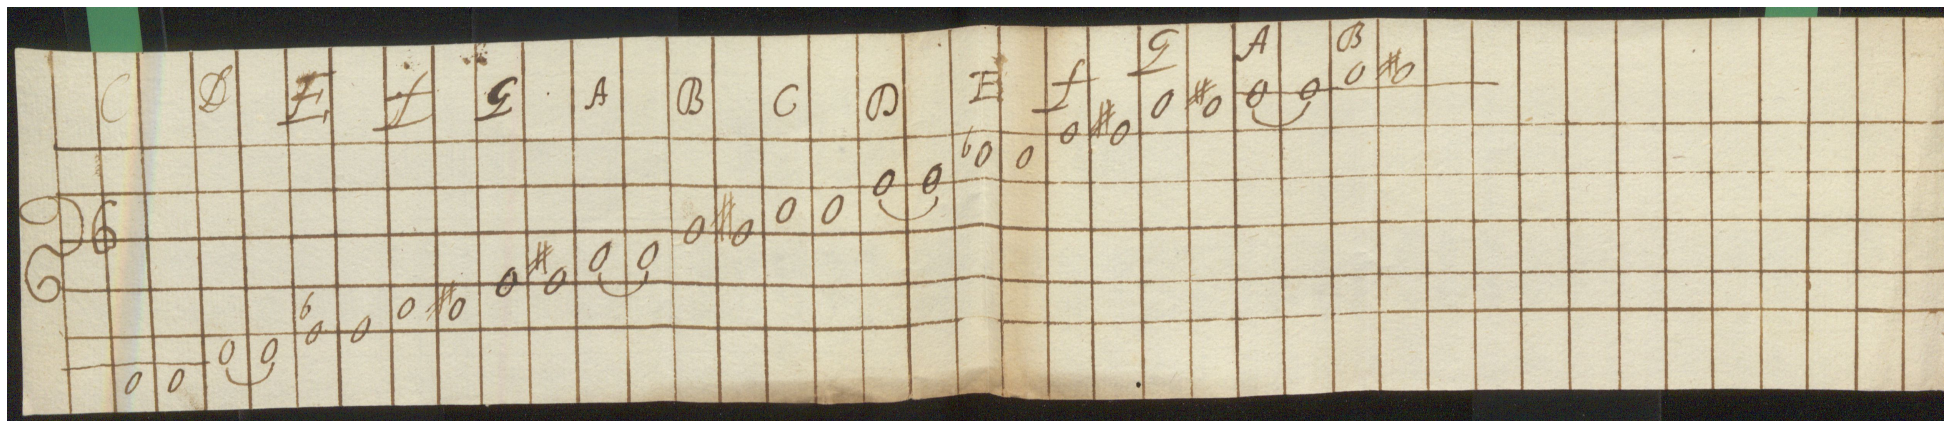 C D E f G A B C D E f G A B